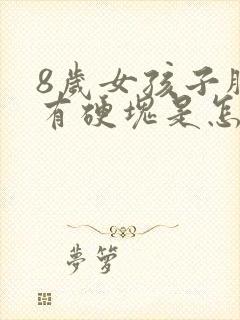 8歲女孩子胸
有硬塊是怎
夢箩